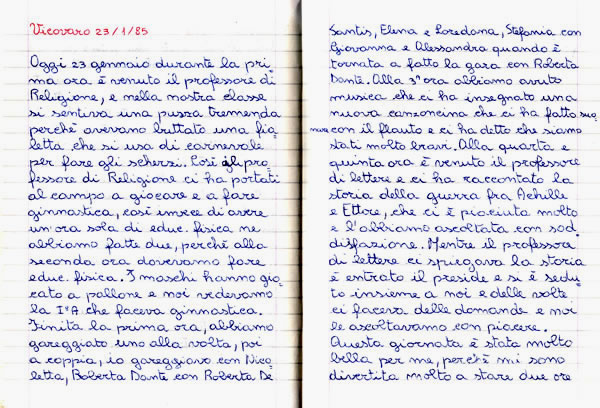 Vicovaro 23/1/85
Oggi 23 gennaio durante la pri-
ma ora è venuto il professore di
Religione, e nella nostra classe
si sentiva una puzza tremenda
perchè avevano buttato una fia-
letta che si usa di carnevale
per fare gli scherzi. Così il pro-
fessore di Religione ci ha portati
al campo a giocare e a fare
ginnastica, così invece di avere
un'ora sola di educ. fisica ne
abbiamo fatte due, perchè alla
seconda ora dovevamo fare
educ. fisica. I maschi hanno gio-
cato a pallone e noi vedevamo
la IªA che faceva ginnastica.
Finita la prima ora, abbiamo
gareggiato uno alla volta, poi
a coppia, io gareggiavo con Nico-
letta, Roberta Dante con Roberta De
Santis, Elena e Loredana, Stefania con
Giovanna e Alessandra quando è
tornata a fatto la gara con Roberta
Dante. Alla 3ª ora abbiamo avuto
musica che ci ha insegnato una
nuova canzoncina che ci ha fatto suo-
nare con il flauto e ci ha detto che siamo
stati molto bravi. Alla quarta e
quinta ora è venuto il professore
di lettere e ci ha raccontato la
storia della guerra fra Achille
e Ettore, che ci è piaciuta molto
e l'abbiamo ascoltata con sod-
disfazione. Mentre il professore
di lettere ci spiegava la storia
è entrato il preside e si è sedu-
to insieme a noi e delle volte
ci faceva delle domande e noi
le ascoltavamo con piacere.
Questa giornata è stata molto
bella per me, perchè mi sono
divertita molto a stare due ore